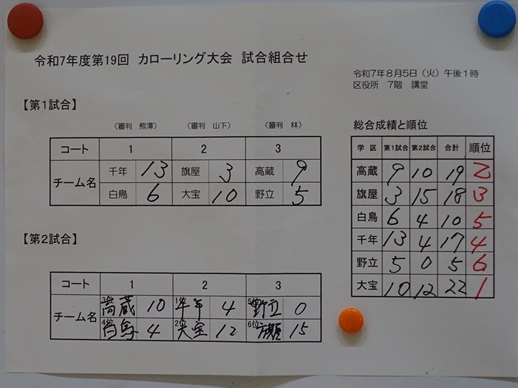 令和7年度第19回 カローリング大会 試合組合せ
令和7年8月5日（火）午後1時
区役所 7階 講堂
【第1試合】
（審判 熊澤） （審判 山下） （審判 林）
コート 1 2 3
チーム名 千年 13 旗屋 3 高蔵 9
白鳥 6 大宝 10 野立 5
【第2試合】
コート 1 2 3
チーム名 高蔵 10 千年 4 野立 0
4位 白鳥 4 2位 大宝 12 6位 旗屋 15
総合成績と順位
学 区 第1試合 第2試合 合計 順位
高蔵 9 10 19 2
旗屋 3 15 18 3
白鳥 6 4 10 5
千年 13 4 17 4
野立 5 0 5 6
大宝 10 12 22 1